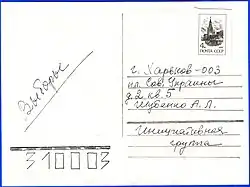 ПОЧТА СССР
Выборы
г. Харьков-003
пл. Сов. Украины
д. 2 кв. 5
Шубенко А. Л.
Инициативная
группа
310003